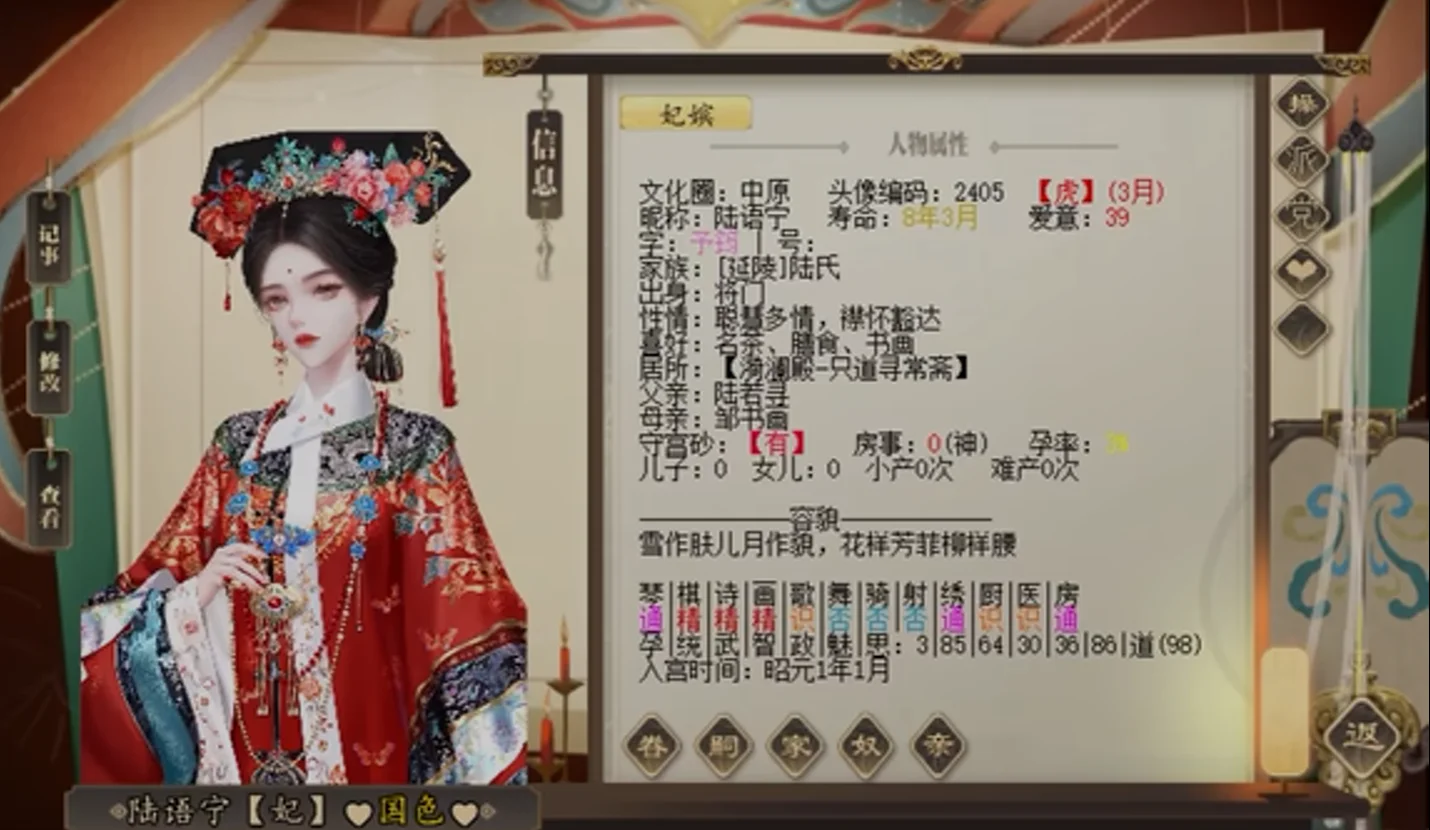 妃嫔
人物属性
信息
记事
修改
查看
文化圈：中原 头像编码：2405 【虎】(3月)
昵称：陆语宁 寿命：8年3月 爱意：39
字：予筠 | 号：
家族：[延陵]陆氏
出身：将门
性情：聪慧多情，襟怀豁达
喜好：名茶、膳食、书画
居所：【漪澜殿-只道寻常斋】
父亲：陆若寻
母亲：邹书画
守宫砂：【有】 房事：0(神) 孕率：3%
儿子：0 女儿：0 小产0次 难产0次
容貌
雪作肤儿月作貌，花样芳菲柳样腰
琴|棋|诗|画|歌|舞|骑|射|绣|厨|医|房
通|精|精|精|识|否|否|否|通|识|识|通
孕|统|武|智|政|魅|思：3|85|64|30|36|86|道(98)
入宫时间：昭元1年1月
眷 嗣 家 奴 亲
操
派
党
返
陆语宁【妃】国色